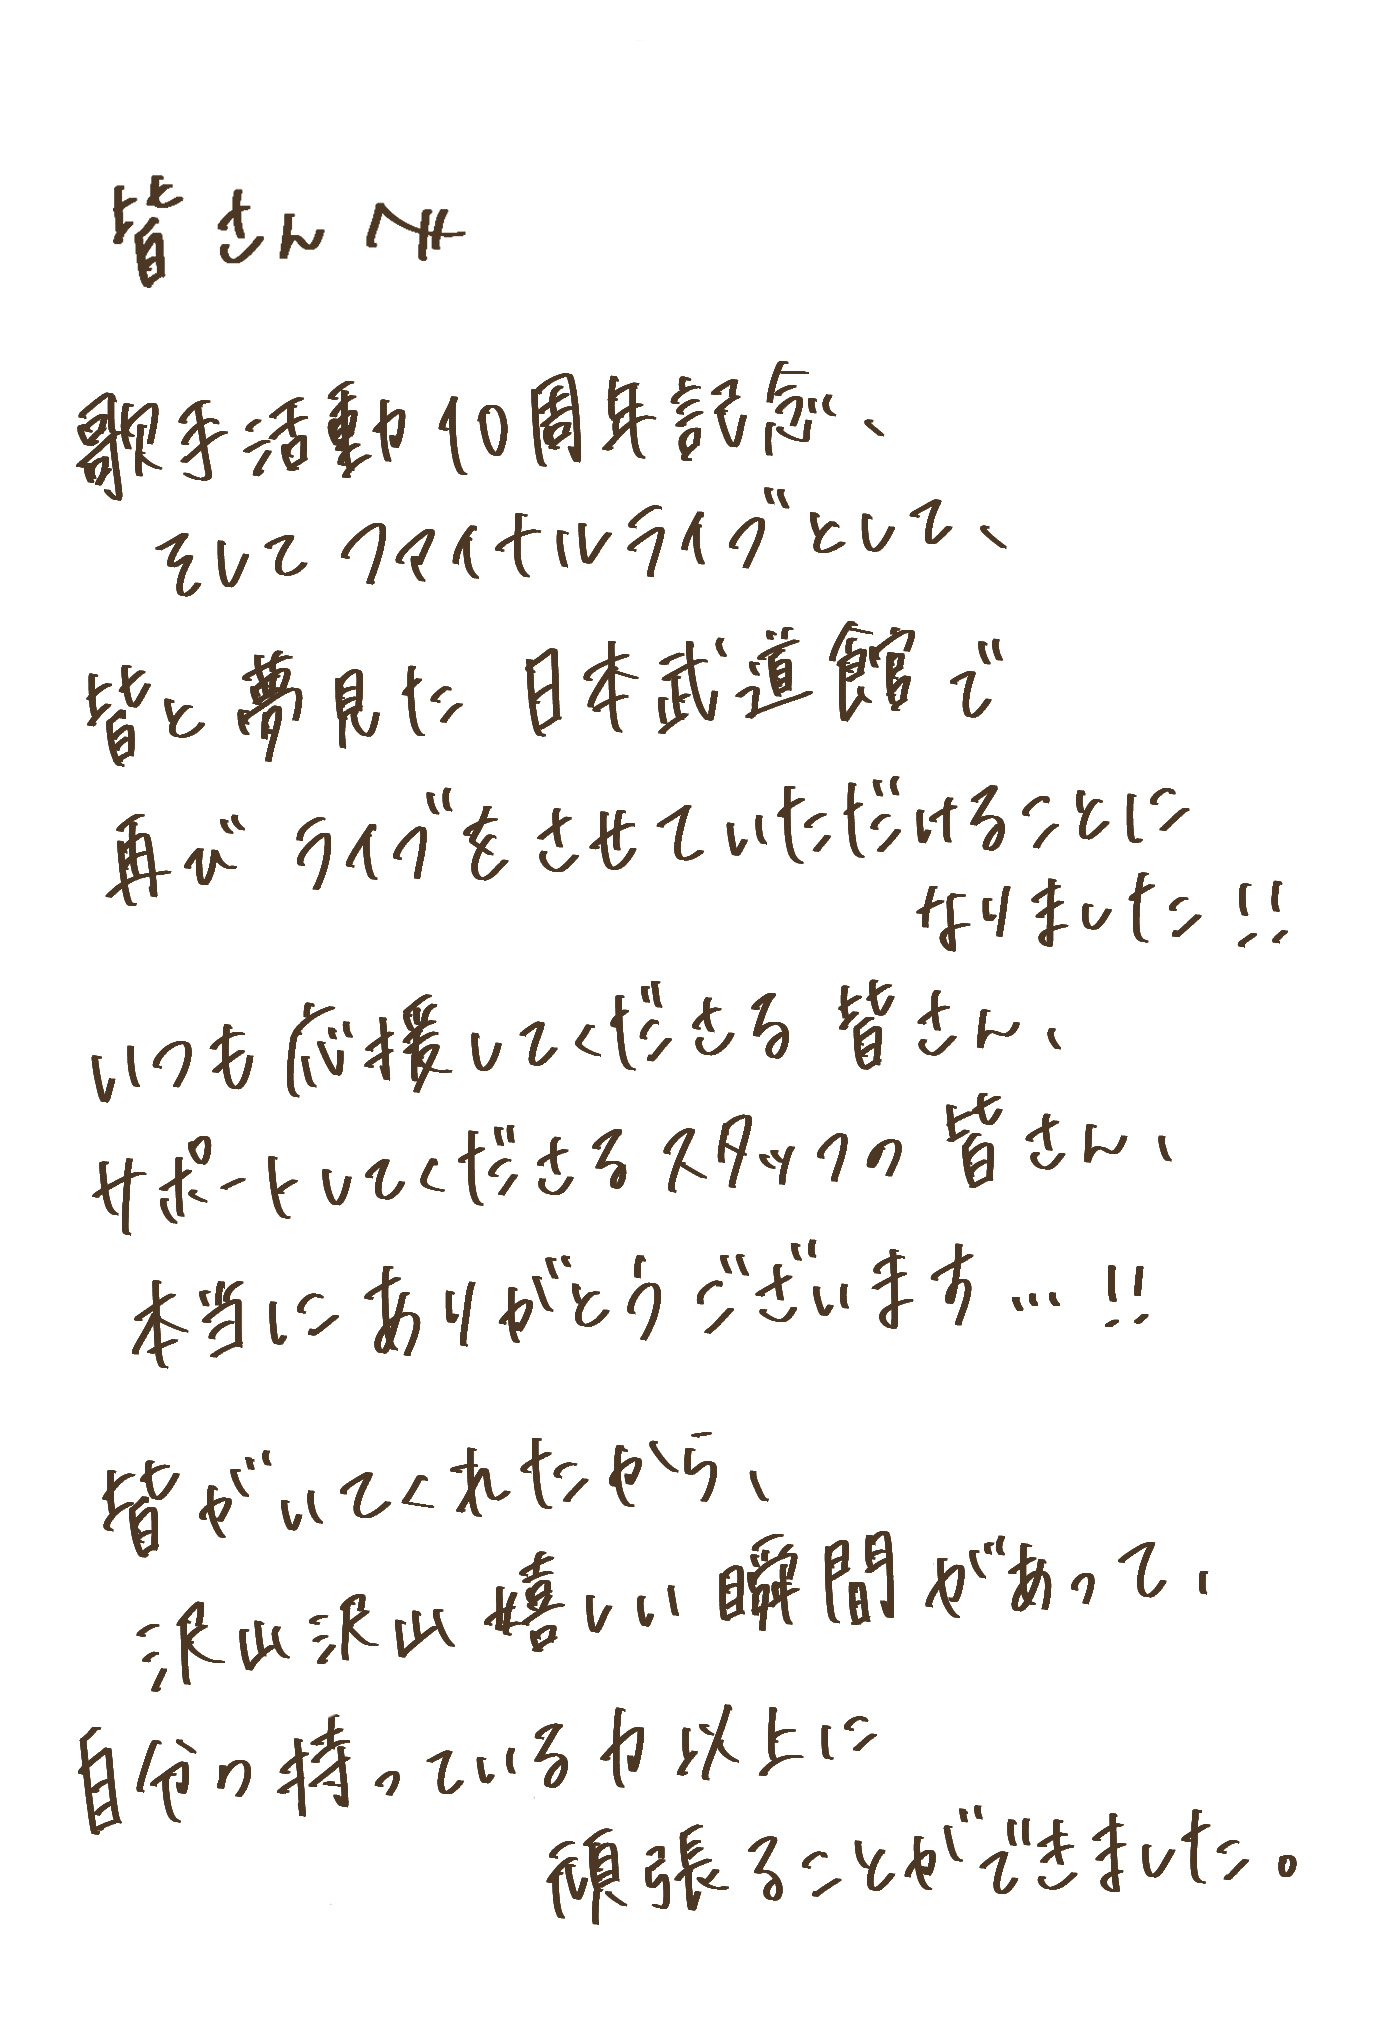 皆さんへ
歌手活動10周年記念、
そしてファイナルライブとして、
皆と夢見た 日本武道館で
再び ライブをさせていただけることに
なりました!!
いつも応援してくださる 皆さん、
サポートしてくださるスタッフの 皆さん、
本当にありがとうございます…!!
皆がいてくれたから、
沢山沢山嬉しい瞬間があって、
自分の持っている力以上に
頑張ることができました。